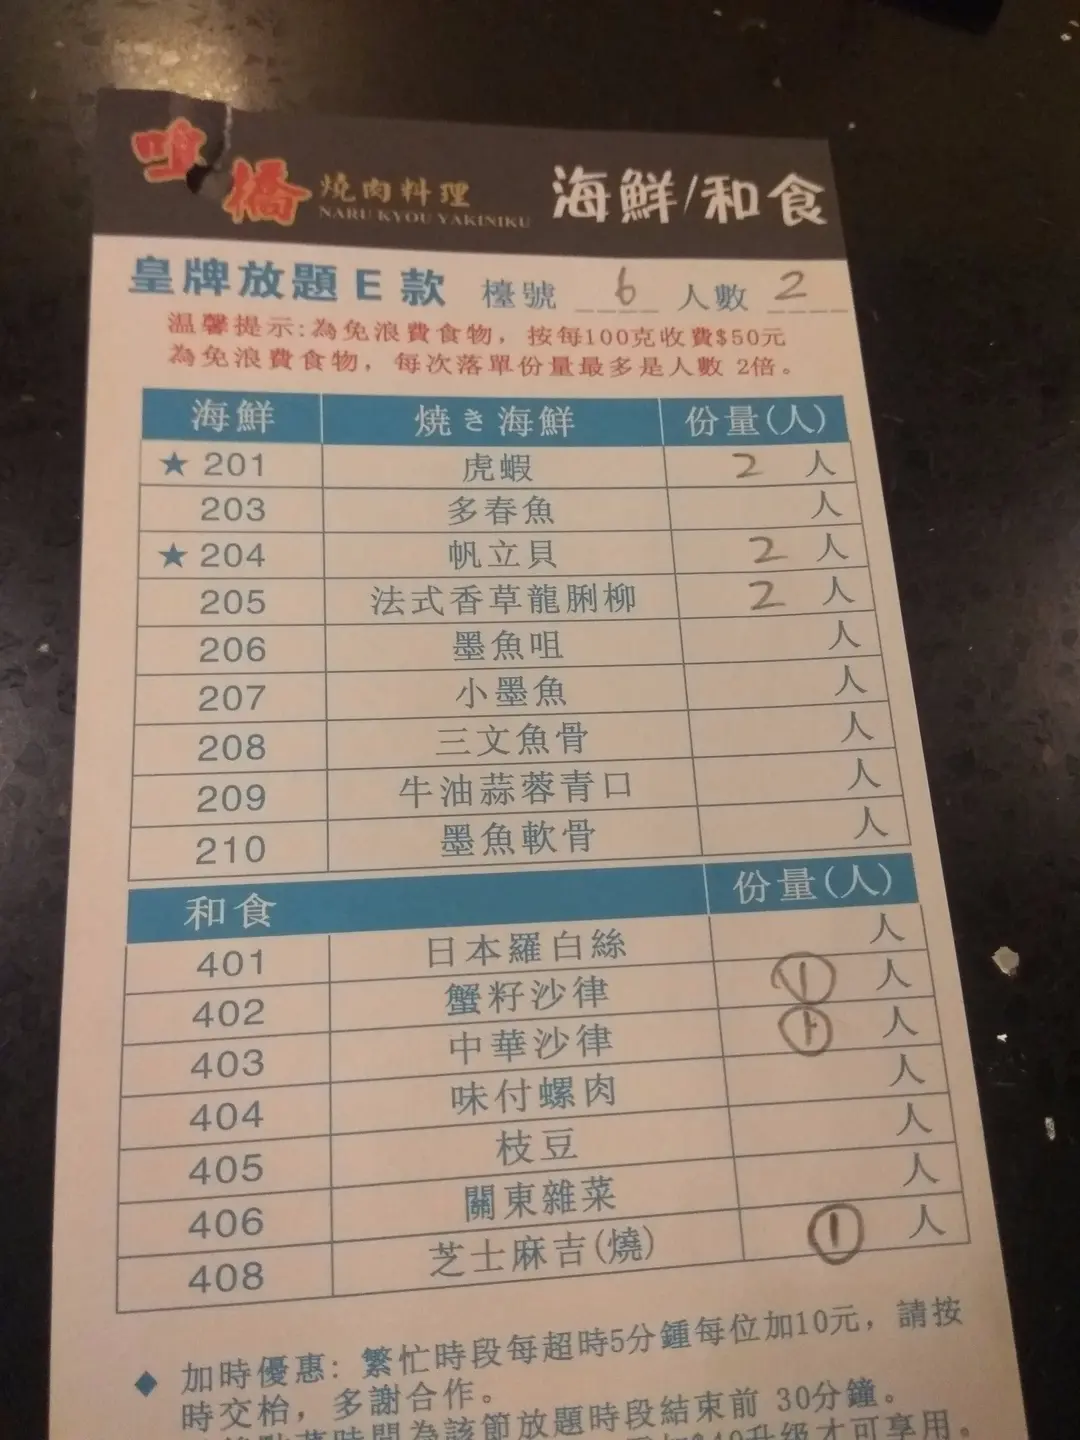 鳴橋 燒肉料理 海鮮/和食
NARU KYOU YAKINIKU
皇牌放題E款 檯號 6 人數 2
温馨提示:為免浪費食物，按每100克收費$50元
為免浪費食物，每次落單份量最多是人數 2倍。
海鮮 焼き海鮮 份量(人)
★ 201 虎蝦 2 人
203 多春魚 人
★ 204 帆立貝 2 人
205 法式香草龍脷柳 2 人
206 墨魚咀 人
207 小墨魚 人
208 三文魚骨 人
209 牛油蒜蓉青口 人
210 墨魚軟骨 人
和食 份量(人)
401 日本羅白絲 人
402 蟹籽沙律 ① 人
403 中華沙律 ① 人
404 味付螺肉 人
405 枝豆 人
406 關東雜菜 人
408 芝士麻吉(燒) ① 人
◆ 加時優惠: 繁忙時段每超時5分鍾每位加10元，請按
時交枱，多謝合作。
時間為該節放題時段結束前 30分鐘。
升级才可享用。